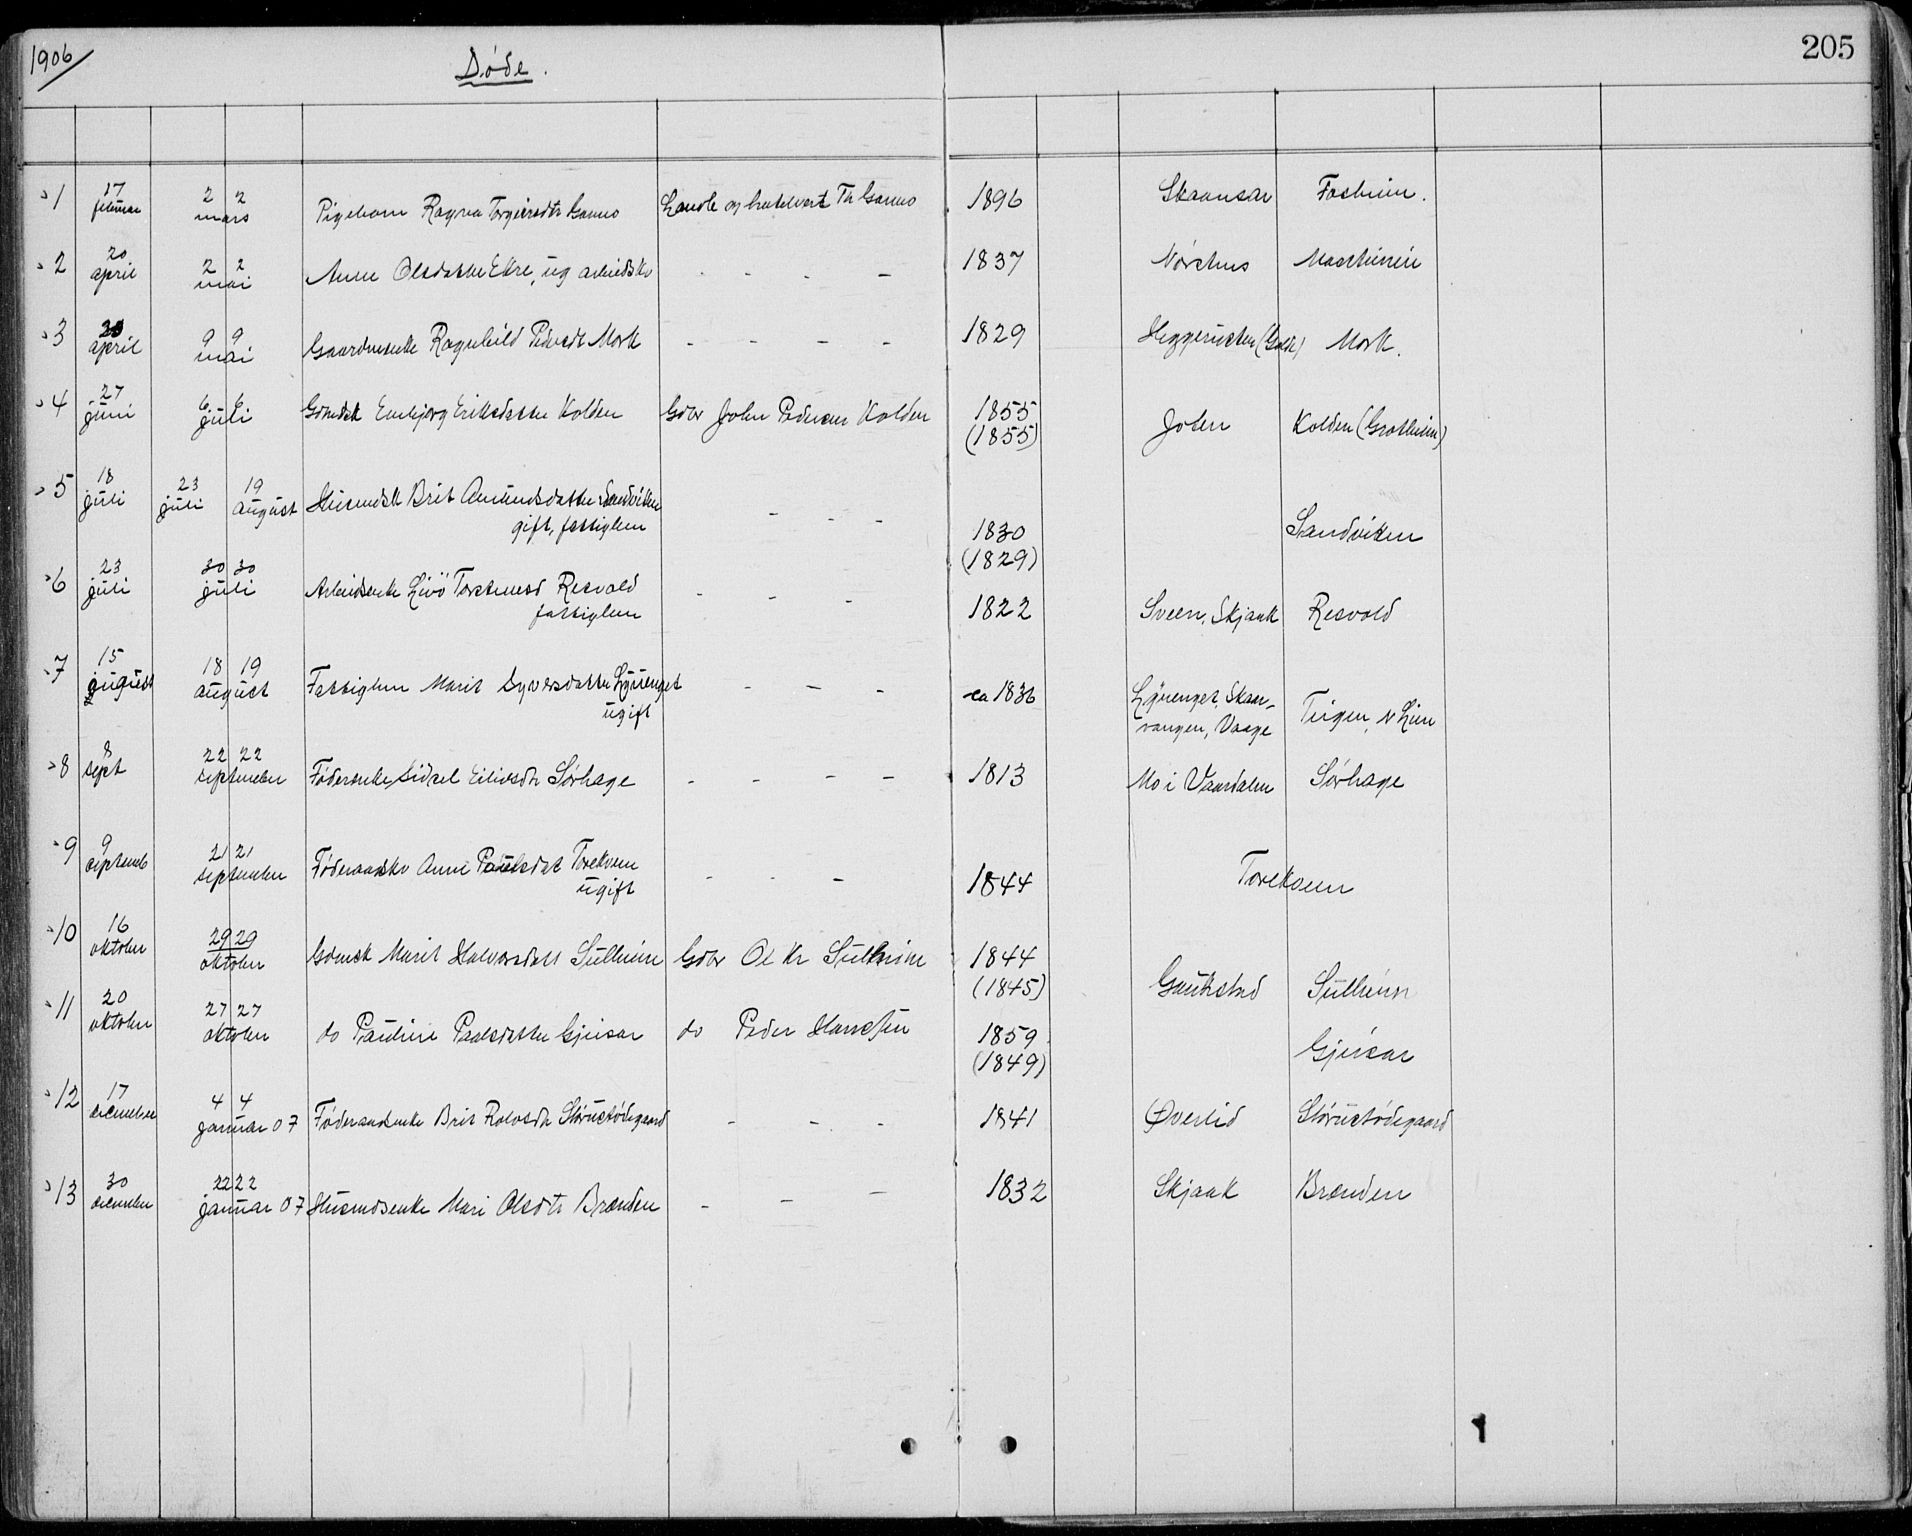 1906
Døde.
205
1 17 februar 2 2 mars Pigebarn Ragna Torgeirsdtr Garmo Landh og hotelvert Th Garmo 1896 Skaansar Fosheim.
2 20 april 2 2 mai Anne Olsdatter Ekre, ug arbeidskv - - - - 1837 Nørstnes
3 april 9 9 mai Gaardmenke Ragnhild Pedersdt Mork - - - - 1829 Heggerusten (Galde) Mork.
4 27 juni 6 6 juli Gdmdsk Embjørg Eriksdatter Kolden Gdbr John Pedersen Kolden 1855 Joten Kolden (Grotheim)
(1855)
5 18 juli 23 juli 19 august Husmdsk Brit Amundsdatter Sandviken - - -
gift, fattiglem 1830 Sandviken
(1829)
6 23 juli 30 30 juli Arbeidsenke Livø Torstensd Resvold - - -
fattiglem 1822 Sveen, Skjaak Resvold
7 15 august 18 19 august Fattiglem Marit Syversdatter Lyurenget - - - ca 1836 Lyurenget, Skaar-
ugift vangen, Vaage Teigen, N Lien
8 8 sept 22 22 september Føderenke Sidsel Eilivsdtr Sørhage - - - - 1813 Mo i Vaardalen Sørhage
9 9 septemb 21 21 september Føderaadskv Anne Paulsdat Torekven - - -
ugift 1844 Torekven
10 16 oktober 29 29 oktober Gdmsk Marit Halvorsdatt Sulheim Gdbr Ol Kr Sulheim 1844
(1845) Gaukstad Sulheim
11 20 oktober 27 27 oktober do Pauline Paalsdatter Gjeisar do Peder Hansen 1859
(1849) Gjeisar
12 17 december 4 4 januar 07 Føderaadsenke Brit Rolvsdtr Størustødegaard - - - 1841 Øverlid Størustødegaard
13 30 december 22 22 januar 07 Husmdsenke Mari Olsdtr Brænden - - - 1832 Skjaak Brænden